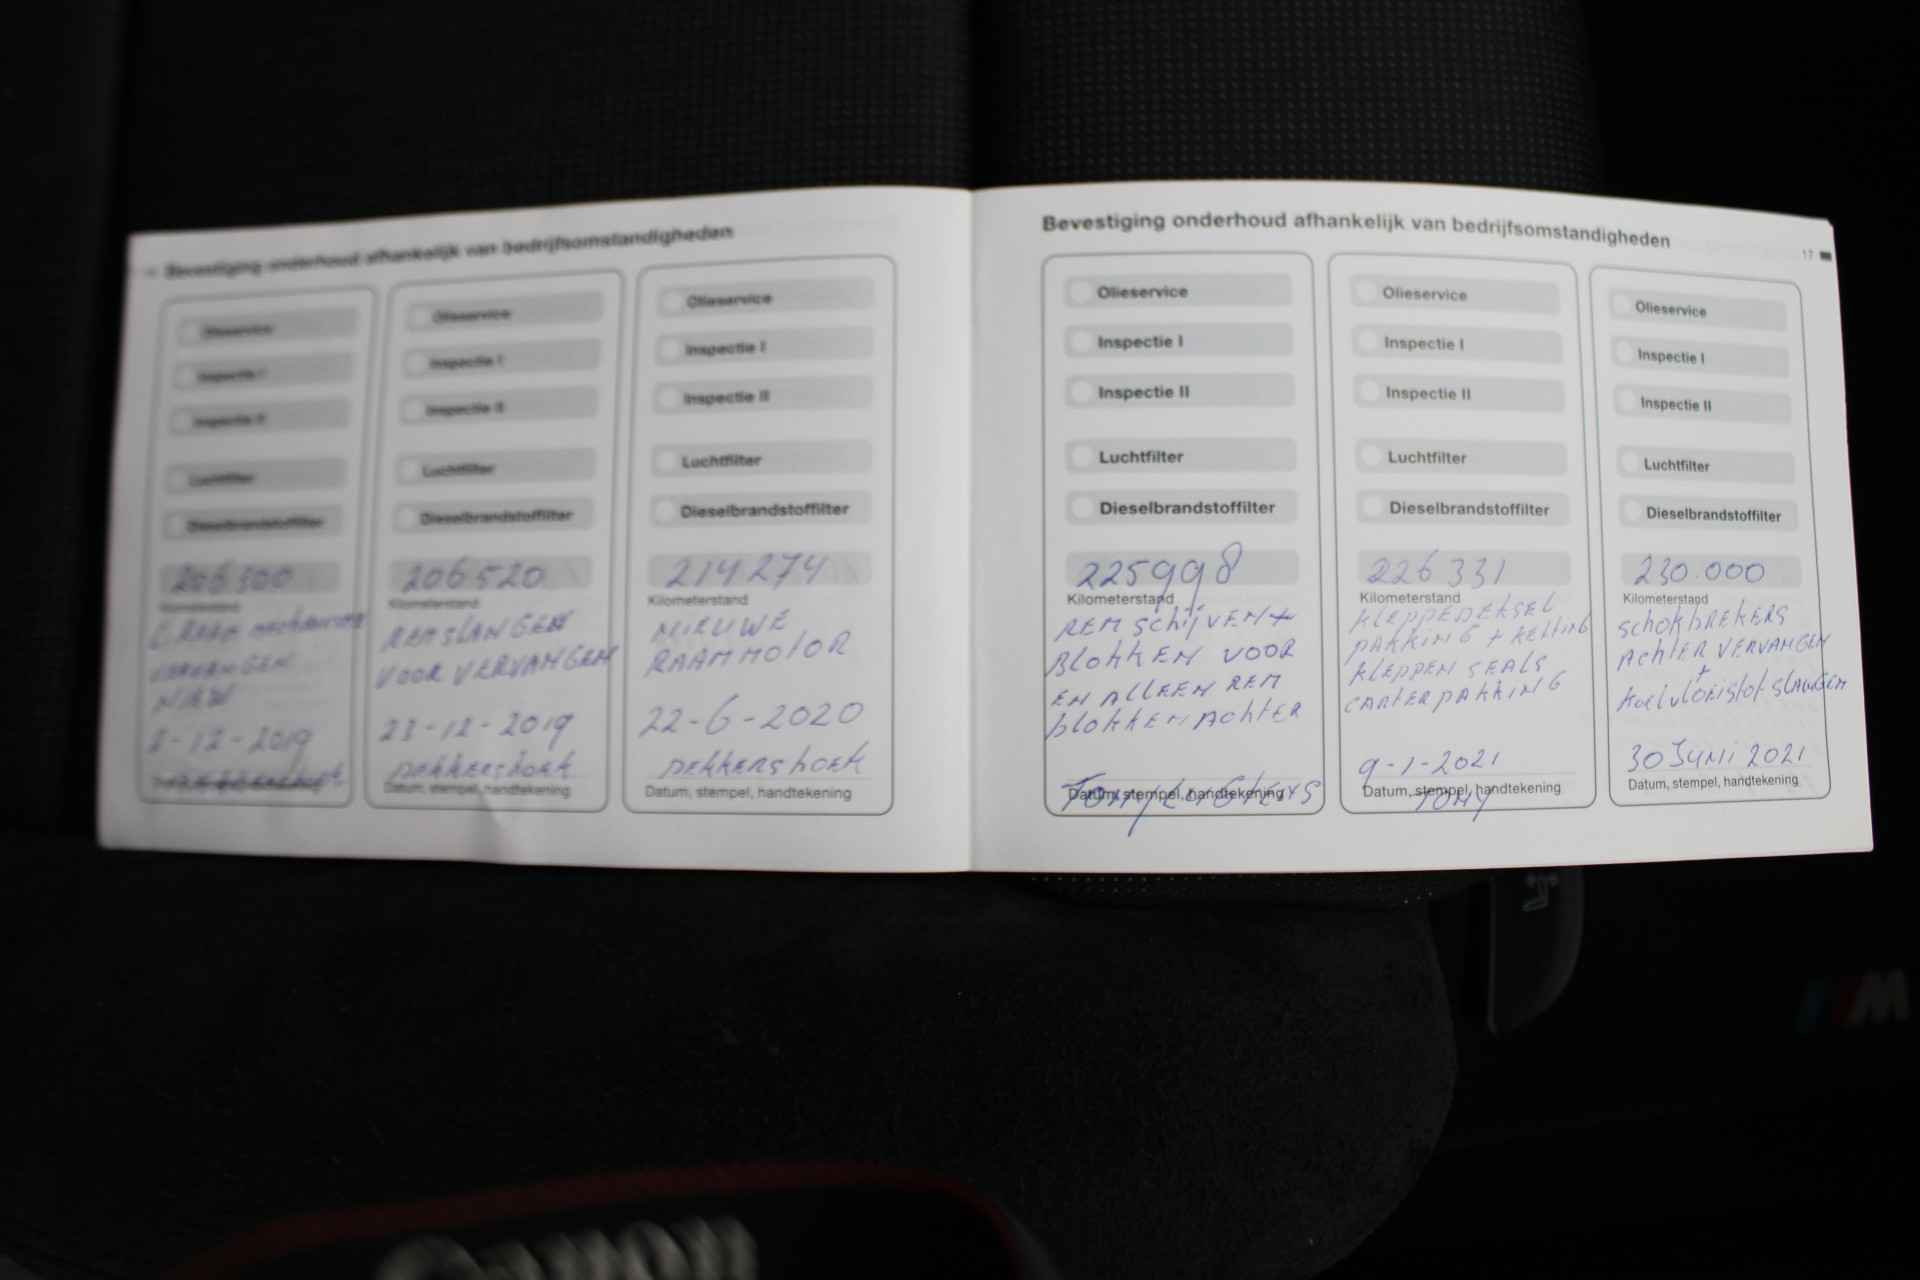 Bevestiging onderhoud afhankelijk van bedrijfsomstandigheden
Olieservice
Inspectie I
Inspectie II
Luchtfilter
Dieselbrandstoffilter
206500
Kilometerstand
VERVANGEN
2-12-2019
Olieservice
Inspectie I
Inspectie II
Luchtfilter
Dieselbrandstoffilter
206520
Kilometerstand
REMSLANGEN
VOOR VERVANGEN
23-12-2019
DEKKERSHOEK
Datum, stempel, handtekening
Olieservice
Inspectie I
Inspectie II
Luchtfilter
Dieselbrandstoffilter
214274
Kilometerstand
NIEUWE
RAAMMOTOR
22-6-2020
DEKKERSHOEK
Datum, stempel, handtekening
Bevestiging onderhoud afhankelijk van bedrijfsomstandigheden
17
Olieservice
Inspectie I
Inspectie II
Luchtfilter
Dieselbrandstoffilter
225998
Kilometerstand
REM SchijVEN +
BLOKKEN VOOR
EN ALLEEN REM
BLOKKEN AChTER
Datum, stempel, handtekening
Olieservice
Inspectie I
Inspectie II
Luchtfilter
Dieselbrandstoffilter
226331
Kilometerstand
KLEPPEDEKSEL
PAKKING + KETTING
KLEPPEN SEALS
CARTERPAKKING
9-1-2021
Datum, stempel, handtekening
TOMY
Olieservice
Inspectie I
Inspectie II
Luchtfilter
Dieselbrandstoffilter
230.000
Kilometerstand
SchokbREKERS
AChTER VERVANGEN
+
KoelvloEistof SLANGEN
30 JUNI 2021
Datum, stempel, handtekening
M